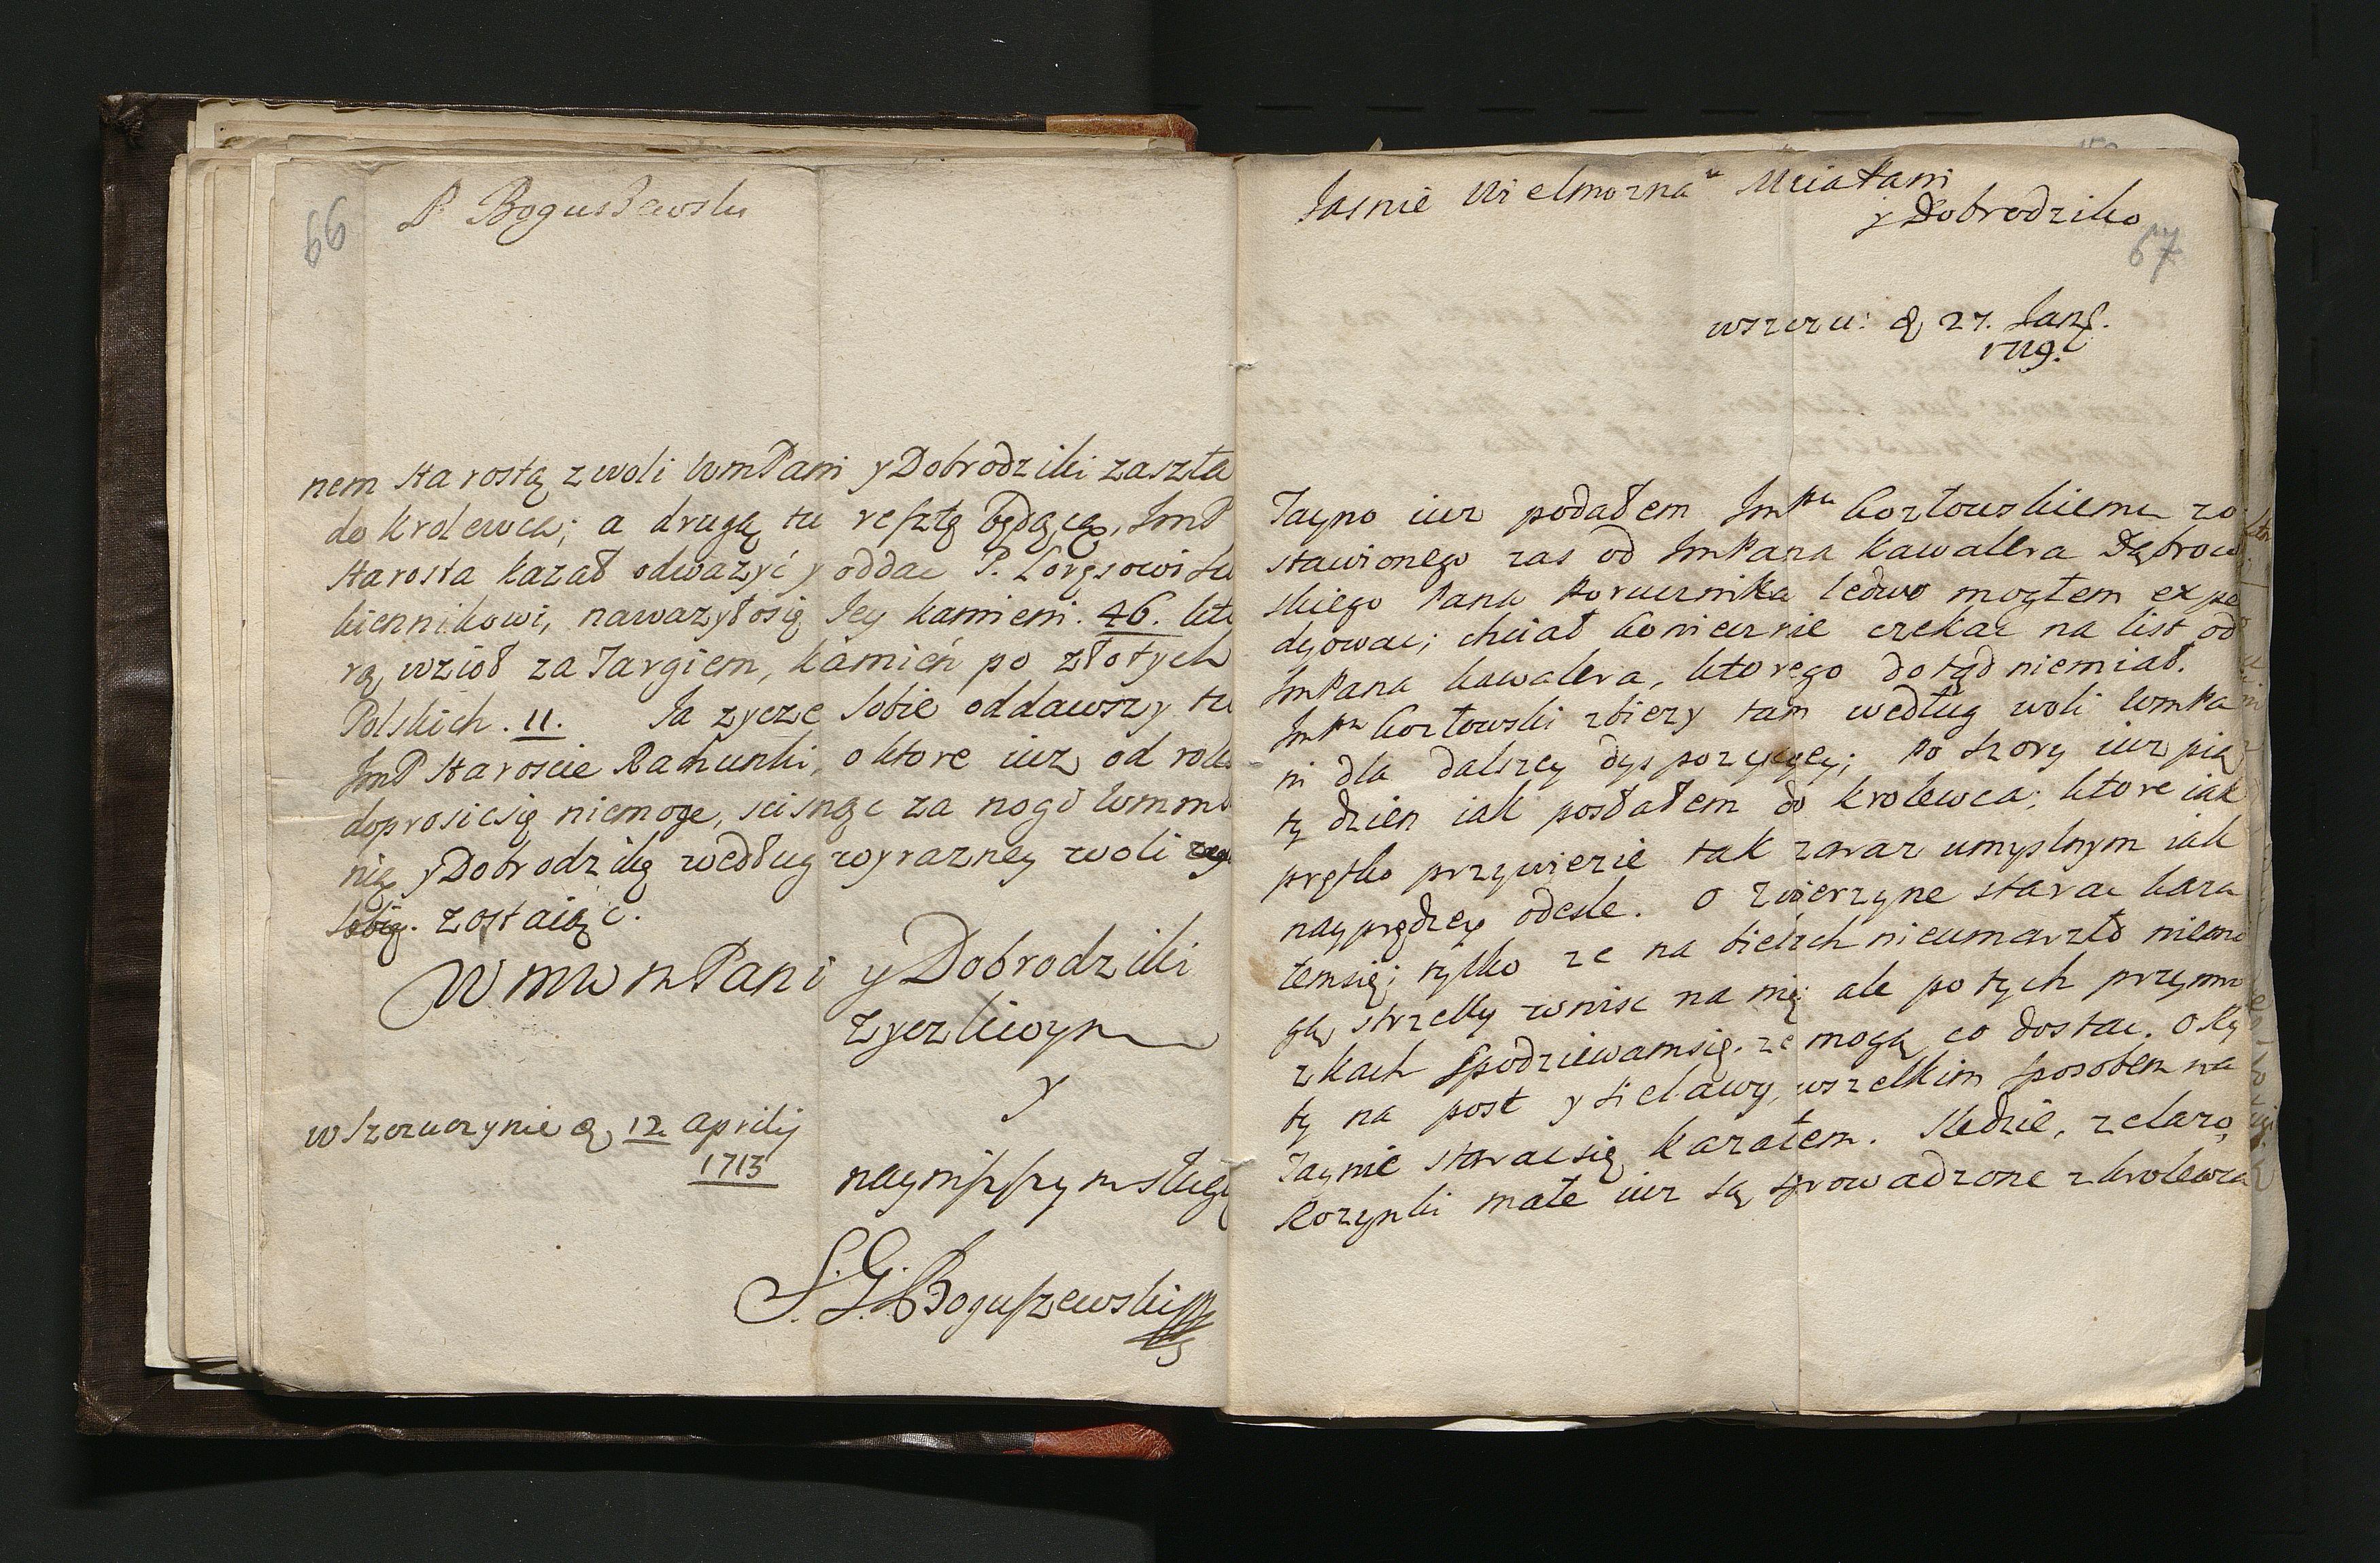 66
P Bogusławski
nem Starostą z woli WmPani y Dobrodziki zaszła
do Krolewca; a drugą tu resztę będącą, JmP
Starosta kazał odwazyć y oddac P. Lorgsowi Su
kiennikowi, nawazyłosię Jey kamieni. 46. kto
rą wzioł za Targiem, kamień po złotych
Polskich. 11. Ja zycze sobie oddawszy tu
JmP Staroscie Rachunki, o ktore iuz od roku
doprosicsię niemoge, scisnąc za nogi WmmP
nią y Dobrodziką według wyrazney woli
sobię. zostaiąc.
WmwmPani y Dobrodziki
zyczliwym
y
nayniszszym sługą
w Szczuczynie d. 12 Aprilij
1713
S. G. Boguszewski
Jasnie Wielmozna Mcia Pani
y Dobrodziko
67
w Szczu: d. 27. Jan.
1719.
Jayno iuz podałem Jmpu Kozłowskiemu zo
stawionego zas od JmPana Kawalera Dąbrow
skiego Pana Porucznika ledwo mogłem expe
dyowac; chciał koniecznie czekac na list od
JmPana Kawalera, ktorego dotąd niemiał.
Jmpn Kozłowski zbiezy tam według woli WmPa
ni dla dalszey dyspozycyey; Po Szory iuz pią
ty dzien iak posłałem do Krolewca; ktore iak
prętko przywiezie tak zaraz umyslnym iak
nayprędzey odesle. O zwierzyne starac kaza
łemsię; tylko ze na bielach nieumarzło niemo
gą strzelcy wnisc na nię; ale po tych przymro
zkach spodziewamsię. ze mogą co dostac. O Ry
by na post y sielawy, wszelkim sposobem na
Jaynie staracsię kazałem. Sledzie,
Rozynki małe iuz są sprowadzone z Krolewca